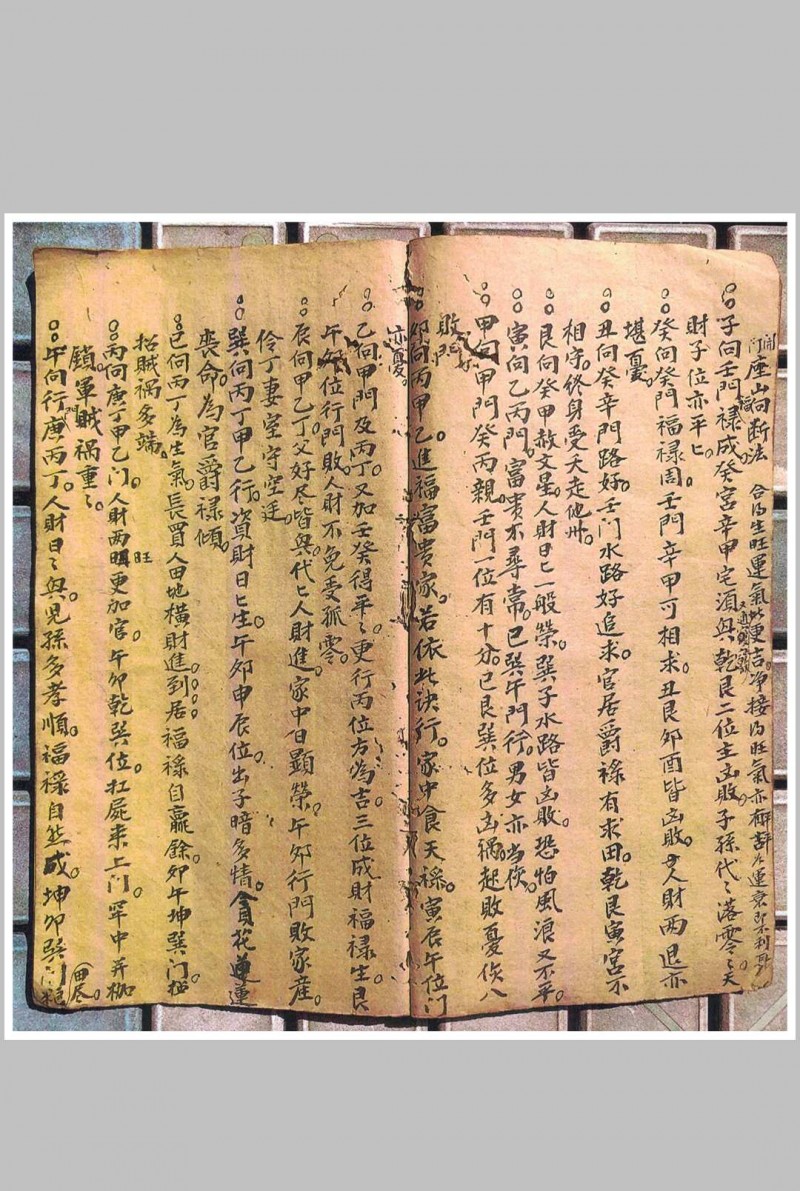 開門座山向斷法 合得生旺運氣此更吉净接得旺氣亦
子向壬門禄成癸宫辛甲宅須與乾艮二位主凶敗子孫代々落零々天
財子位亦平匕
癸向癸門福禄周壬門辛甲可相求丑艮夘酉皆凶敗人財两退亦
堪憂
丑向癸辛門路好壬门水路好追求官居爵禄有求田乾艮寅宫不
相守终身受夭走他州
艮向癸甲赦文星人財日匕一般榮巽子水路皆凶敗恐怕風浪又不平
寅向乙丙門富貴不尋常巳巽午門行男女亦当
甲向甲門癸丙親壬門一位有十分巳艮巽位多凶禍起敗憂
敗
夘向丙甲乙進福富貴家若依此诀行家中食天禄寅辰午位门
亦憂
乙向甲門及丙丁又加壬癸得平々更行丙位方為吉三位成財福禄生艮
午夘位行門敗人財不免受孤零
辰向甲乙丁父好尽皆與代匕人財進家中日顯榮午夘行門敗家產
伶丁妻室守空廷
巽向丙丁甲乙行資財日匕生午夘申辰位出子暗多情貪花運
喪命為官爵禄傾
巳向丙丁為生氣長買人田地橫財進到居福禄自贏餘夘午坤巽门
招賊禍多端
丙向庚丁甲乙门人財两旺更加官午夘乾巽位扛屍来上门罕中并枷
鎖軍賊禍重々
午向行庚丙丁門人財日々與兒孫多孝順福禄自然成坤卯巽门
田尽